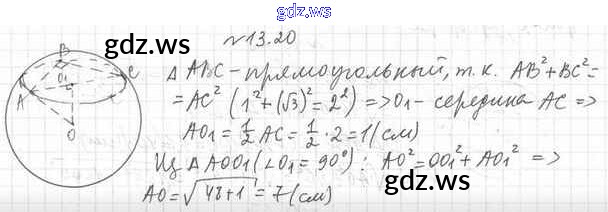 gdz.ws
№13.20
gdz.ws
△ABC - прямоугольный, т.к. AB²+BC²=
=AC² (1²+(√3)²=2²) => O₁ - середина AC =>
AO₁ = 1/2 AC = 1/2 · 2 = 1 (см)
Из △AOO₁ (∠O₁ = 90°): AO² = OO₁² + AO₁² =>
AO = √48+1 = 7 (см)
gdz.ws
B
O₁
C
A
O